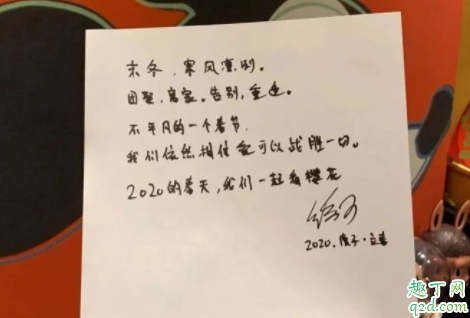 末冬，寒风凛冽。
团聚，离家。告别，重逢。
不平凡的一个春节
我们依然相信爱可以战胜一切。
2020的春天，我们一起看樱花
2020.庚子·立春
趣丁网
q2d.com